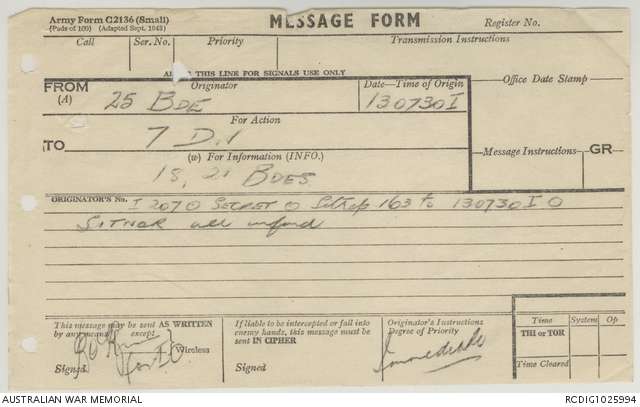 Army Form C2136 (Small)
(Pads of 100) (Adapted Sept. 1943)
MESSAGE FORM
Register No.
Call Ser. No. Priority Transmission Instructions
THIS LINE FOR SIGNALS USE ONLY
FROM (A) Originator 25 BDE
Date—Time of Origin 130730I
Office Date Stamp
For Action
TO 7 DIV
(w) For Information (INFO.)
18, 21 BDES
Message Instructions GR
ORIGINATOR'S No. I 2070 SECRET O Sitrep 163 to 130730 I O
SITNOR all infmd
This message may be sent AS WRITTEN by any means except
Wireless
Signed
If liable to be intercepted or fall into enemy hands, this message must be sent IN CIPHER
Signed
Originator's Instructions
Degree of Priority
Immediate
Time System Op
THI or TOR
Time Cleared
AUSTRALIAN WAR MEMORIAL
RCDIG1025994